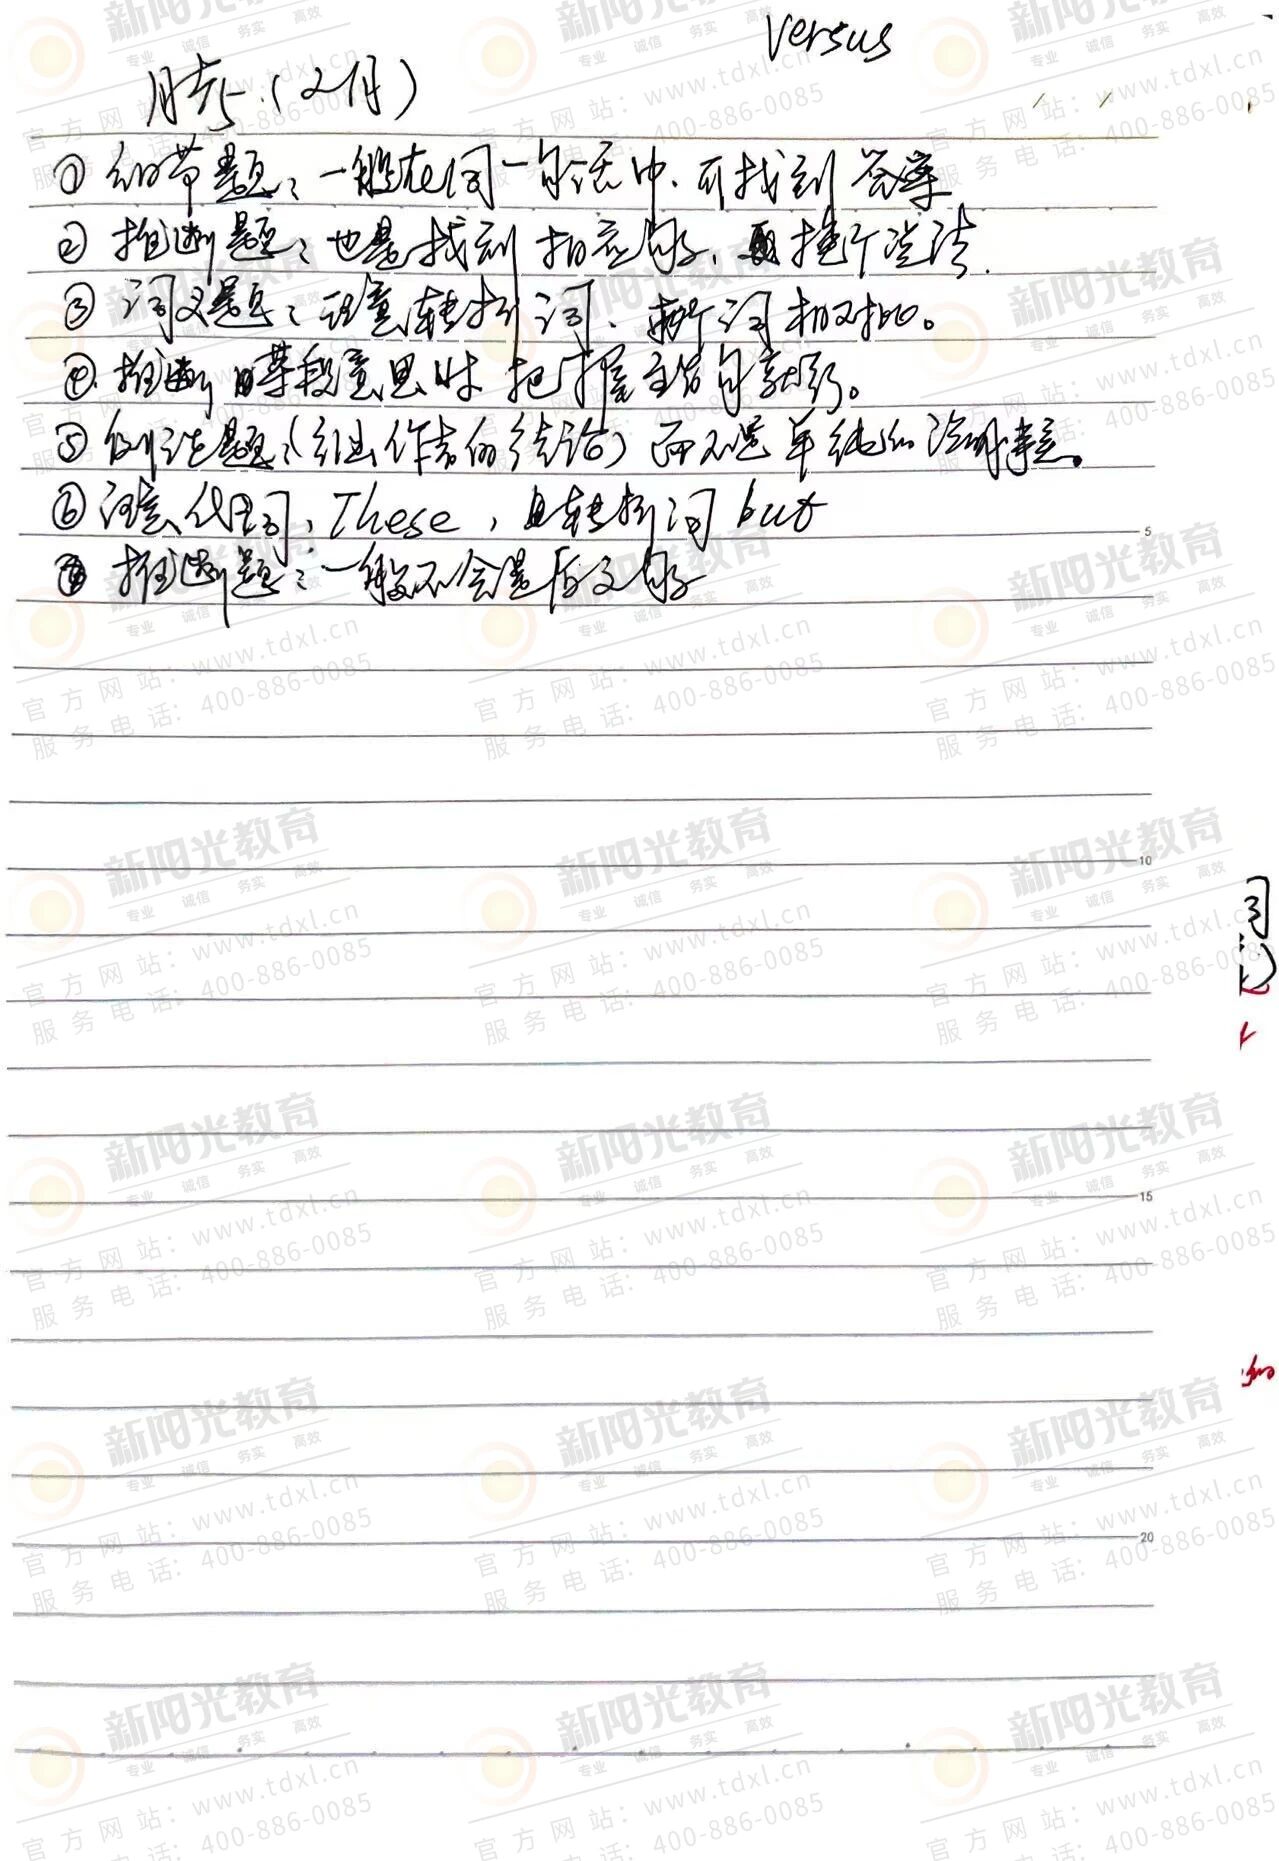 versus
月考(2月)
① 细节题：一般在同一句话中、可找到答案
② 推断题：也是找到相应句子、再换个说法.
③ 词义题：注意转折词、新词相对比。
④. 推断 某段意思时 把握主旨句就行。
⑤ 例证题:(引出作者的结论) 而不是单纯的说明事实。
⑥ 注意代词, These, 且转折词 but
⑦ 推断题：一般不会是原文句子
5
10
15
20
词
新阳光教育
专业 诚信 务实 高效
官方网站：www.tdxl.cn
服务电话：400-886-0085